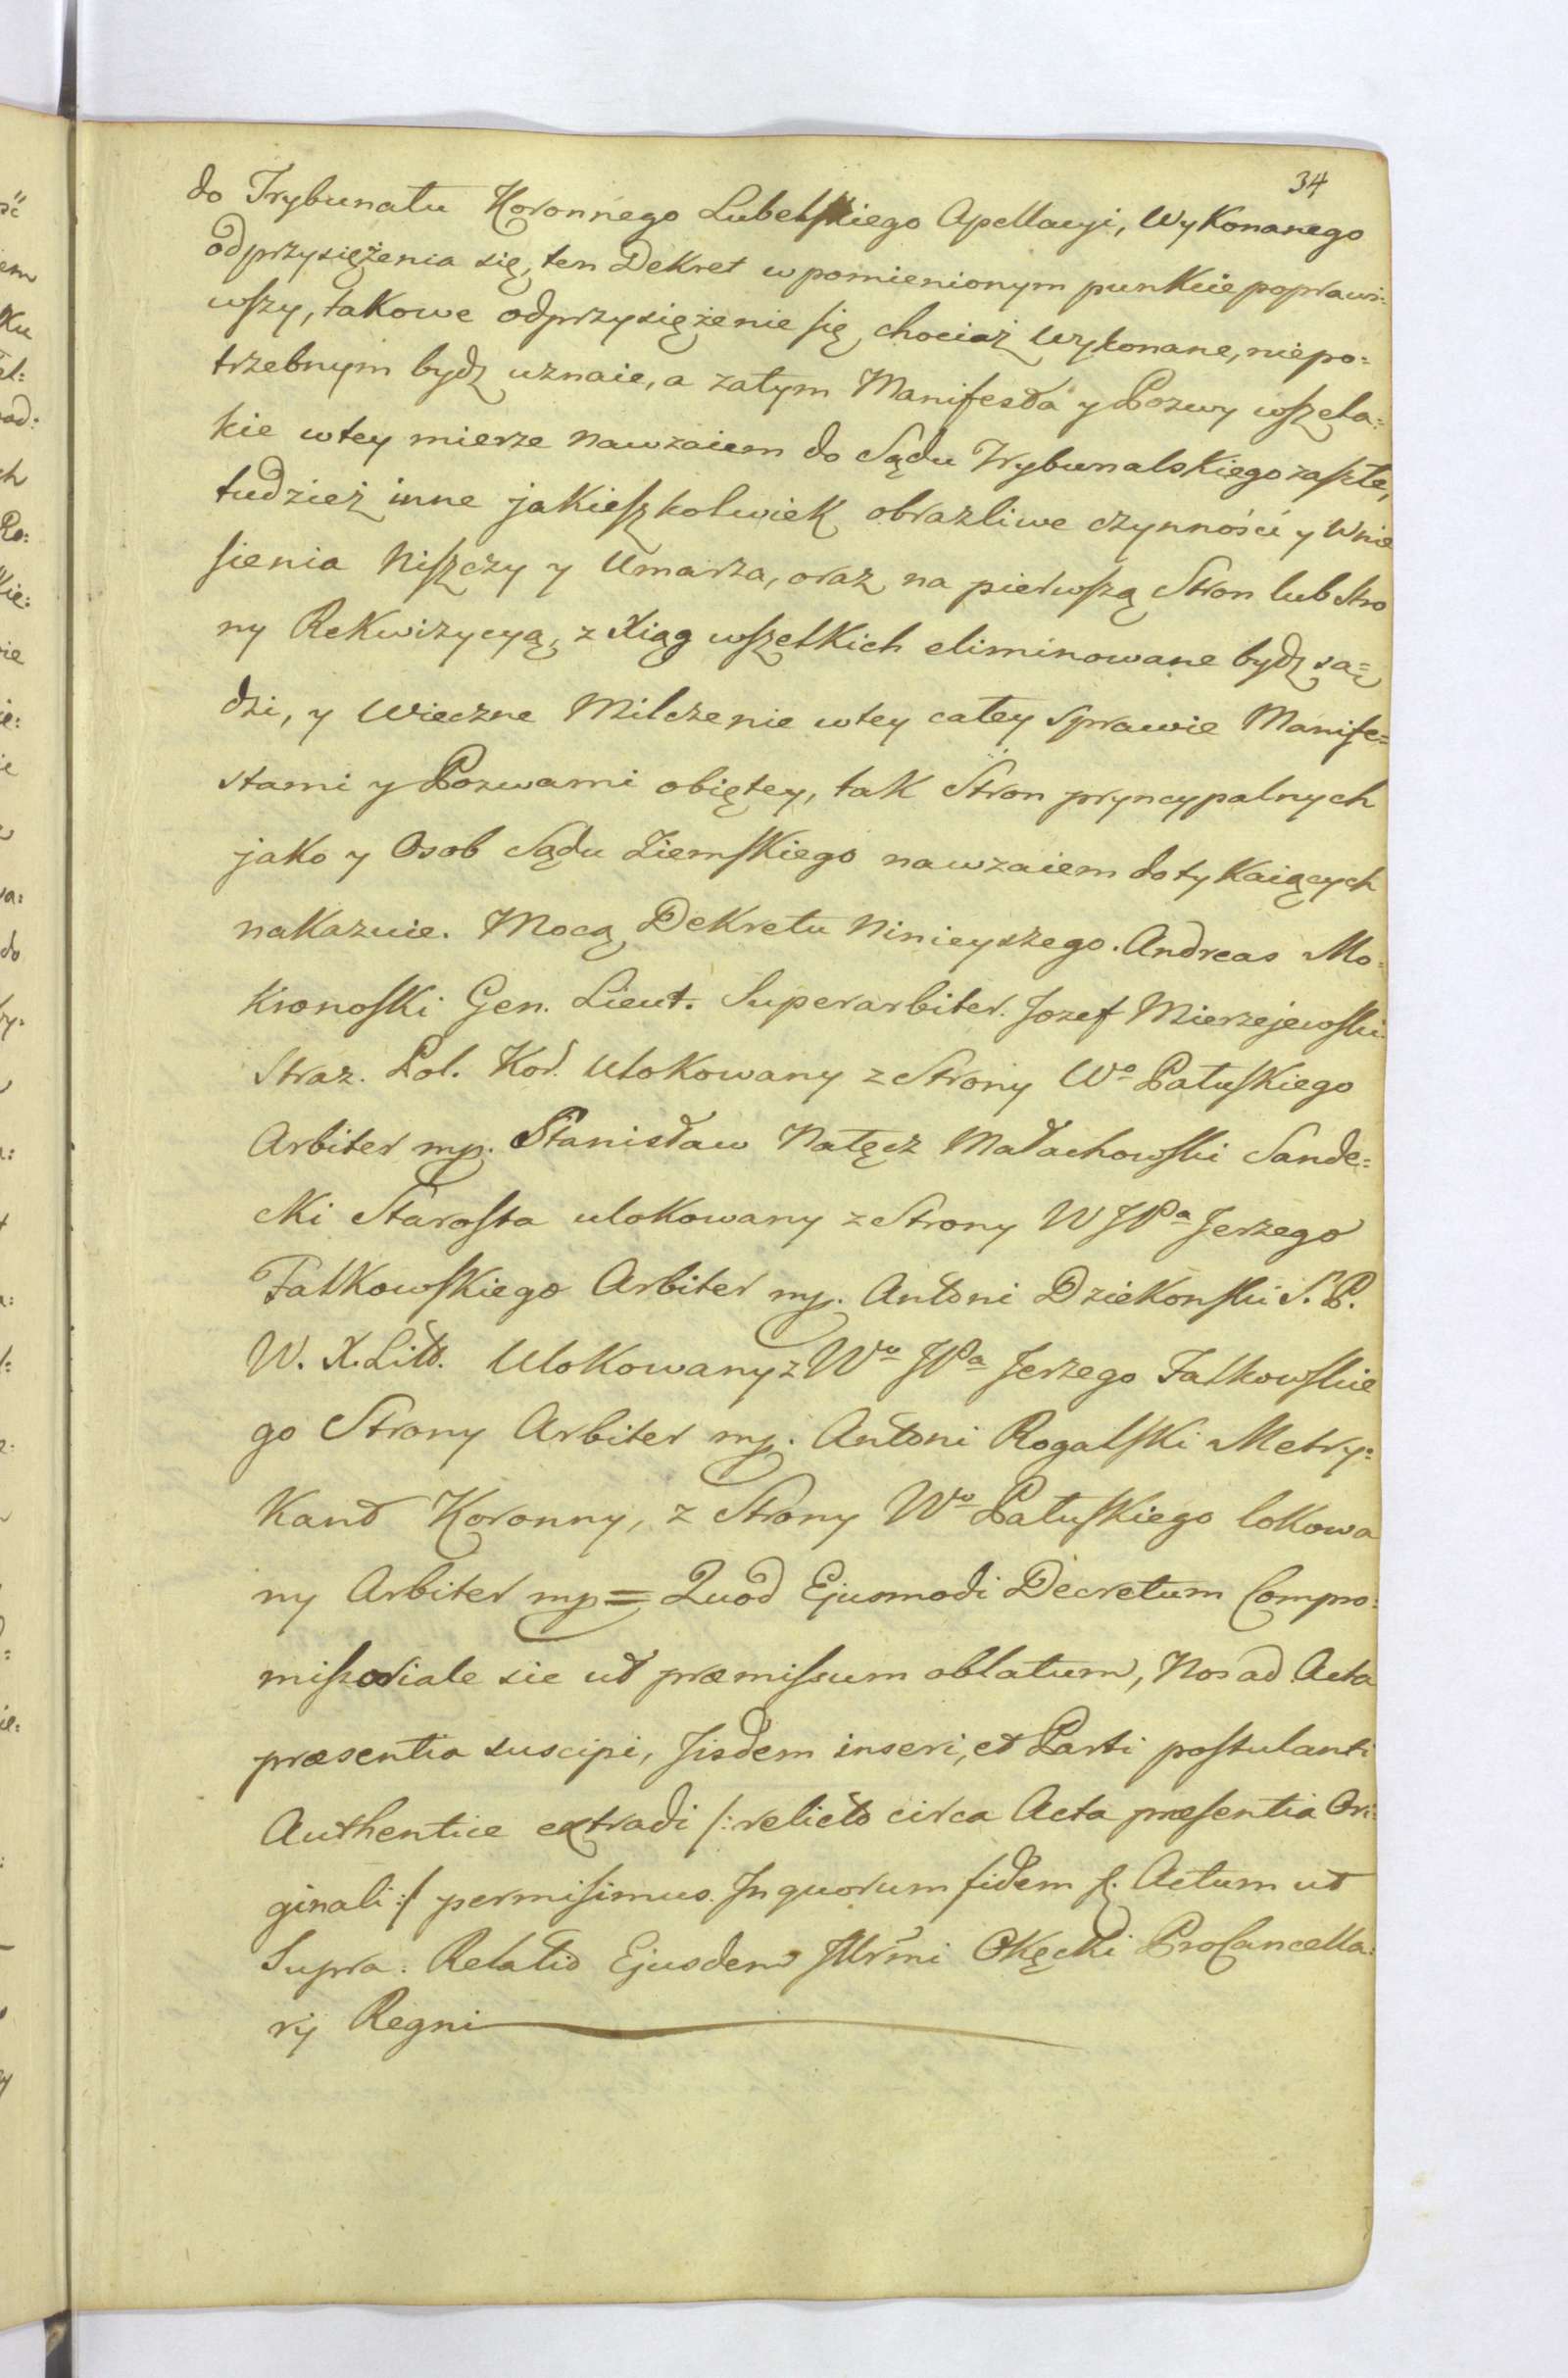 34
do Trybunału Koronnego Lubelskiego Apellacyi, Wykonanego
odprzysiężenia się, ten Dekret w pomienionym punkcie poprawi:
wszy, takowe odprzysiężenie się chociaż wykonane, niepo:
trzebnym bydź uznaie, a zatym Manifesta y Pozwy wszela:
kie w tey mierze nawzaiem do Sądu Trybunalskiego zaszłe,
tudzież inne jakieszkolwiek obraźliwe czynności y Wnie
sienia Niszczy y Umarza, oraz na pierwszą Stron lub Stro
ny Rekwizycyą, z Xiąg wszelkich eliminowane bydź są=
dzi, y Wieczne Milczenie w tey całey Sprawie Manife=
stami y Pozwami obiętey, tak Stron pryncypalnych
jako y Osob Sądu Ziemskiego nawzaiem dotykaiących
nakazuie. Mocą Dekretu Ninieyszego. Andreas Mo:
kronoski Gen. Lieut. Superarbiter. Jozef Mierzejewski
Straz. Pol. Kor. Ulokowany z Strony Wº Pałuskiego
Arbiter mp. Stanisław Nałęcz Małachowski Sande:
cki Starosta ulokowany z Strony W JPª Jerzego
Falkowskiego Arbiter mp. Antoni Dziekonski S. P.
W. X. Litt. Ulokowany z Wº JPª Jerzego Falkowskie
go Strony Arbiter mp. Antoni Rogalski Metry:
kant Koronny, z Strony Wº Pałuskiego lokowa
ny Arbiter mp = Quod Ejusmodi Decretum Compro:
missoriale sic ut præmissum oblatum, Nos ad Acta
præsentia suscipi, Jisdem inseri, et Parti postulanti
Authentice extradi /: relicto circa Acta præsentia Ori:
ginali :/ permisimus. In quorum fidem &. Actum ut
Supra. Relatio Ejusdem Illr̃mi Okęcki ProCancella:
rij Regni